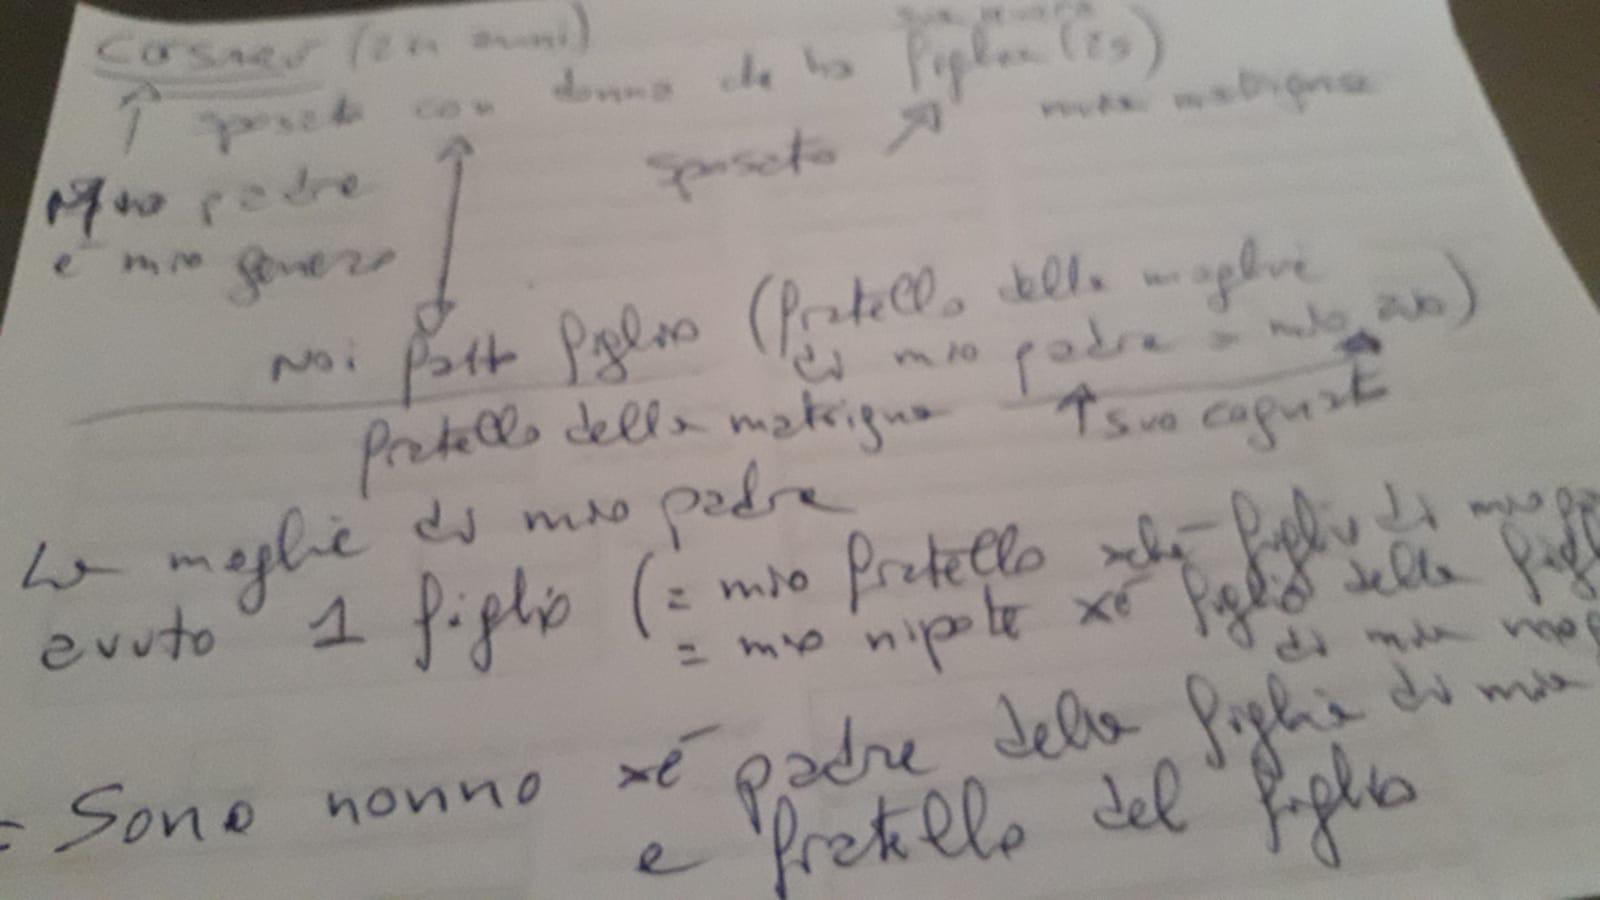 sposato con donna che ha figlia (25)
sposato mia matrigna
Mio padre
è mio genero
Noi fatto figlio (fratello della moglie
di mio padre = mio zio)
fratello della matrigna ↑ suo cognato
La moglie di mio padre
avuto 1 figlio (= mio fratello xché figlio di mio
= mio nipote xé figlio della
di mia
= Sono nonno xé padre della figlia di mia
e fratello del figlio